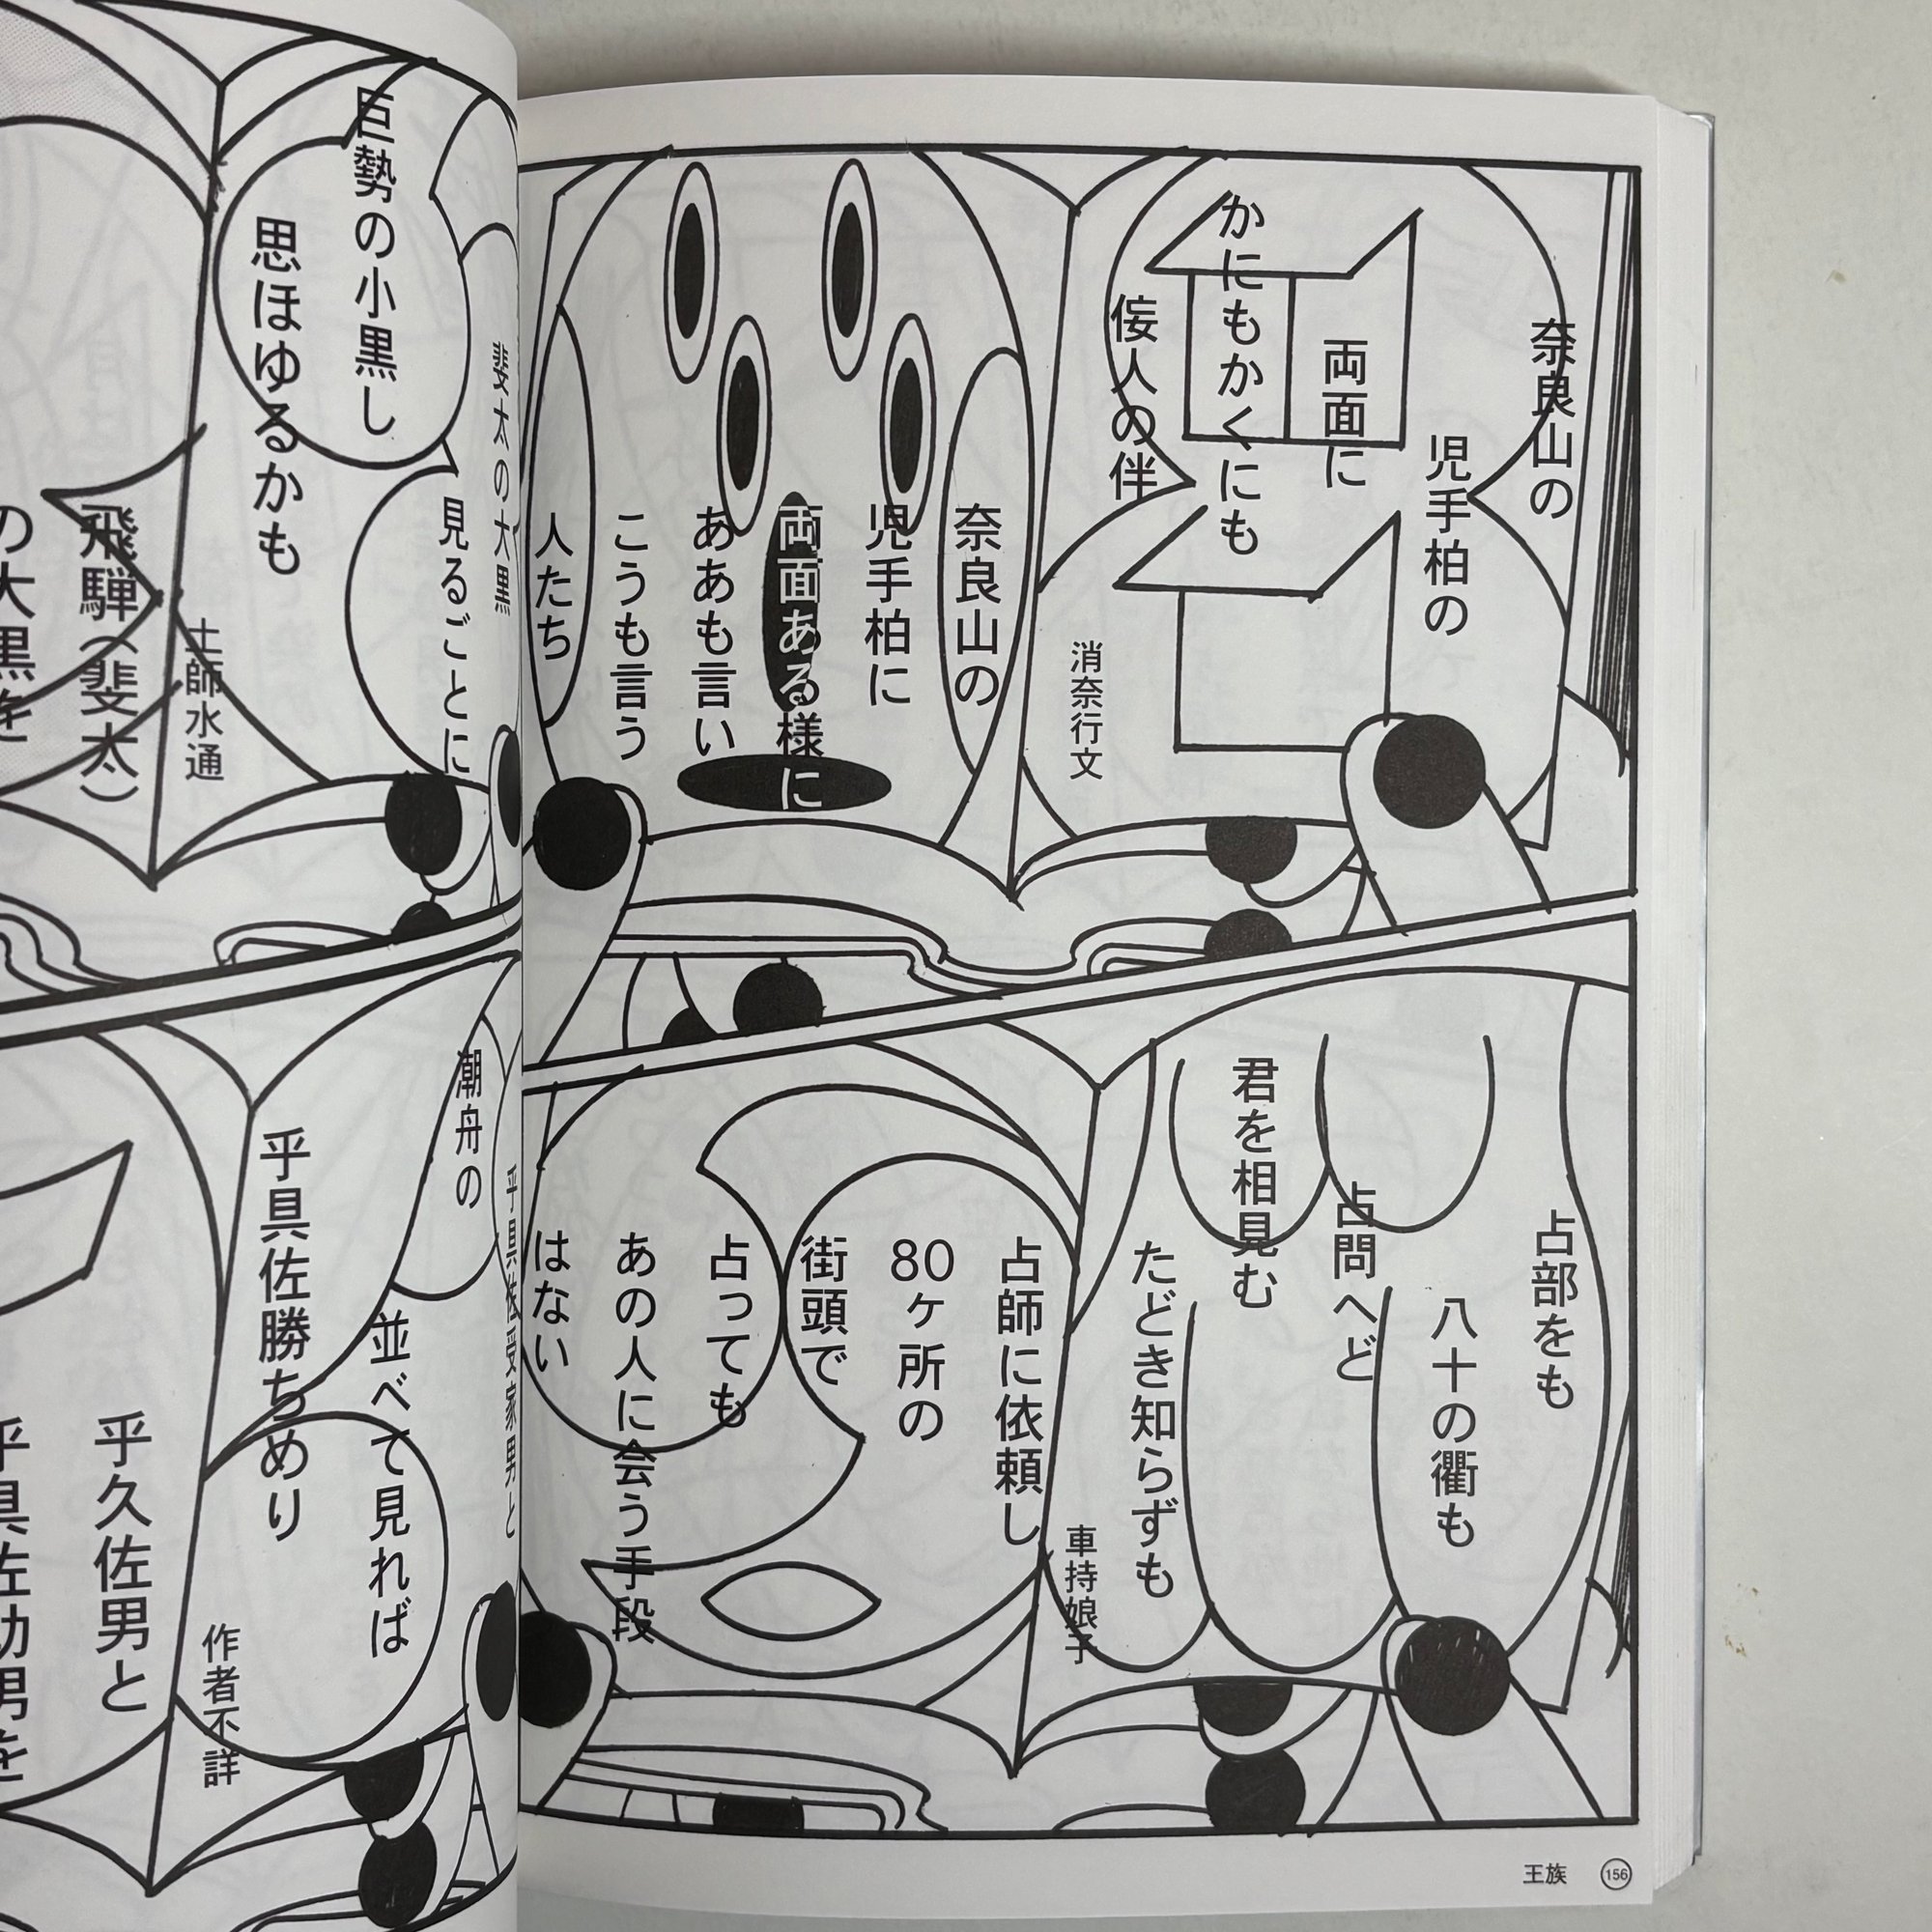 奈良山の
児手柏の
両面に
かにもかくにも
侫人の伴
消奈行文
奈良山の
児手柏に
両面ある様に
ああも言い
こうも言う
人たち
占部をも
八十の衢も
占問へど
君を相見む
たどき知らずも
車持娘子
占師に依頼し
80ヶ所の
街頭で
占っても
あの人に会う手段
はない
王族
156
斐太の大黒
見るごとに
巨勢の小黒し
思ほゆるかも
土師水通
飛騨（斐太）
の大黒を
乎具佐受家男と
潮舟の
並べて見れば
乎具佐勝ちめり
作者不詳
乎久佐男と
乎具佐助男を